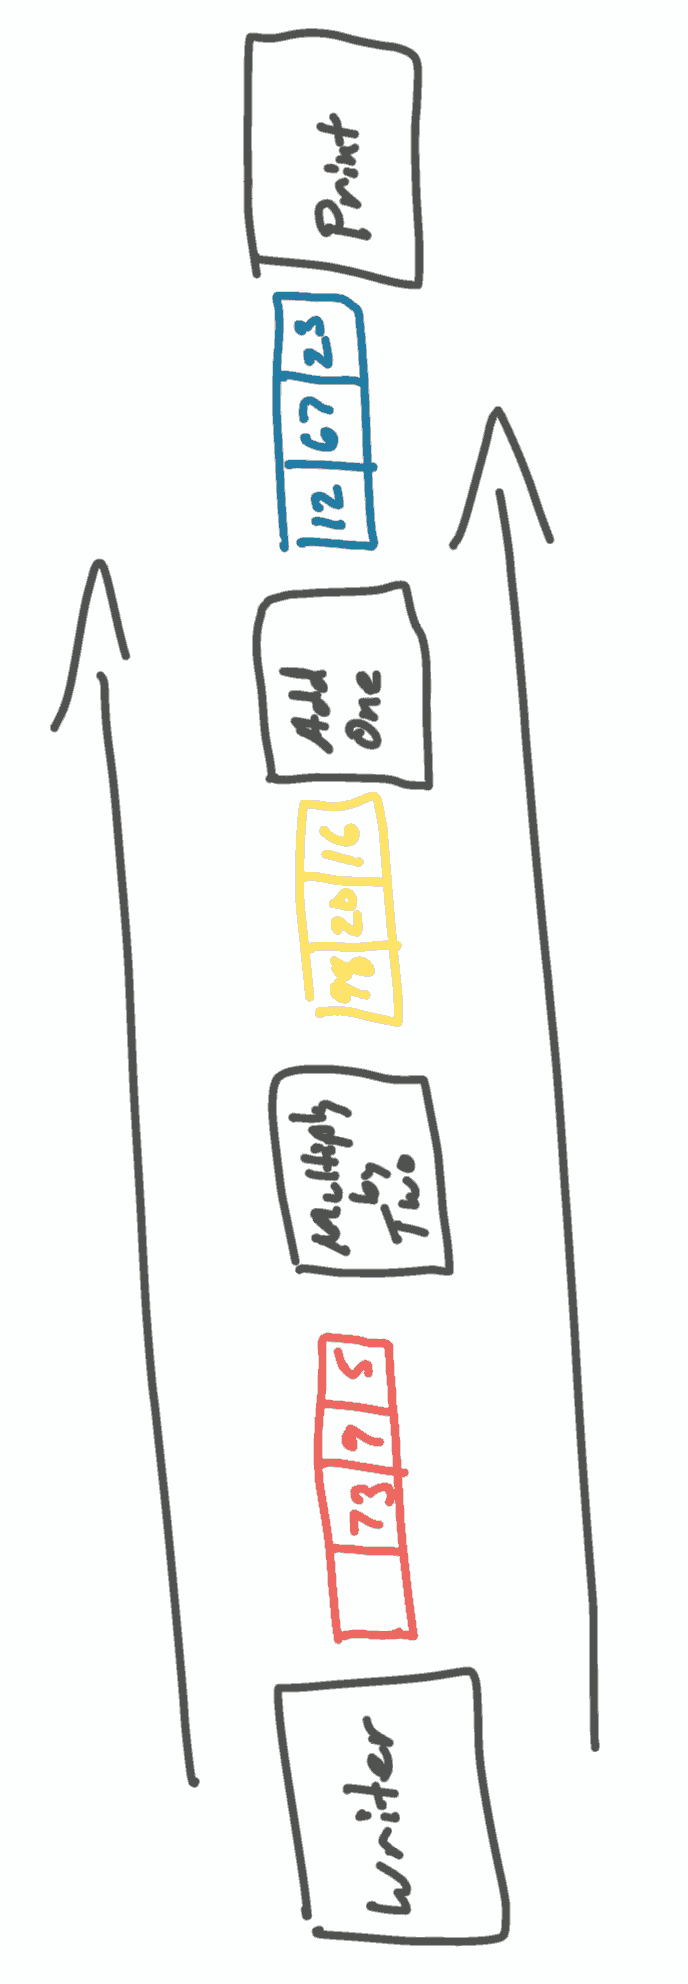 Writer
73 9 5
Multiply
by
Two
20 16
Add
One
12 67 23
Print